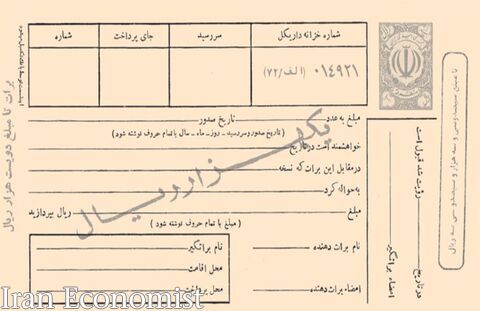 شماره خزانه داری کل
سررسید
جای پرداخت
شماره
۰۱۴۹۲۱ (الف/۷۲)
مبلغ به عدد
تاریخ صدور
(تاریخ صدور و سررسید - روز - ماه - سال با تمام حروف نوشته شود)
خواهشمند است در تاریخ
در مقابل این برات که نسخه
به حواله کرد
مبلغ
ریال بپردازید
(مبلغ با تمام حروف نوشته شود)
نام برات دهنده
امضاء برات دهنده
نام براتگیر
محل اقامت
محل پرداخت
یکهزار ریال
برات تا مبلغ دویست هزار ریال
رؤیت شد قبول است
در تاریخ
امضاء براتگیر
Iran Economist